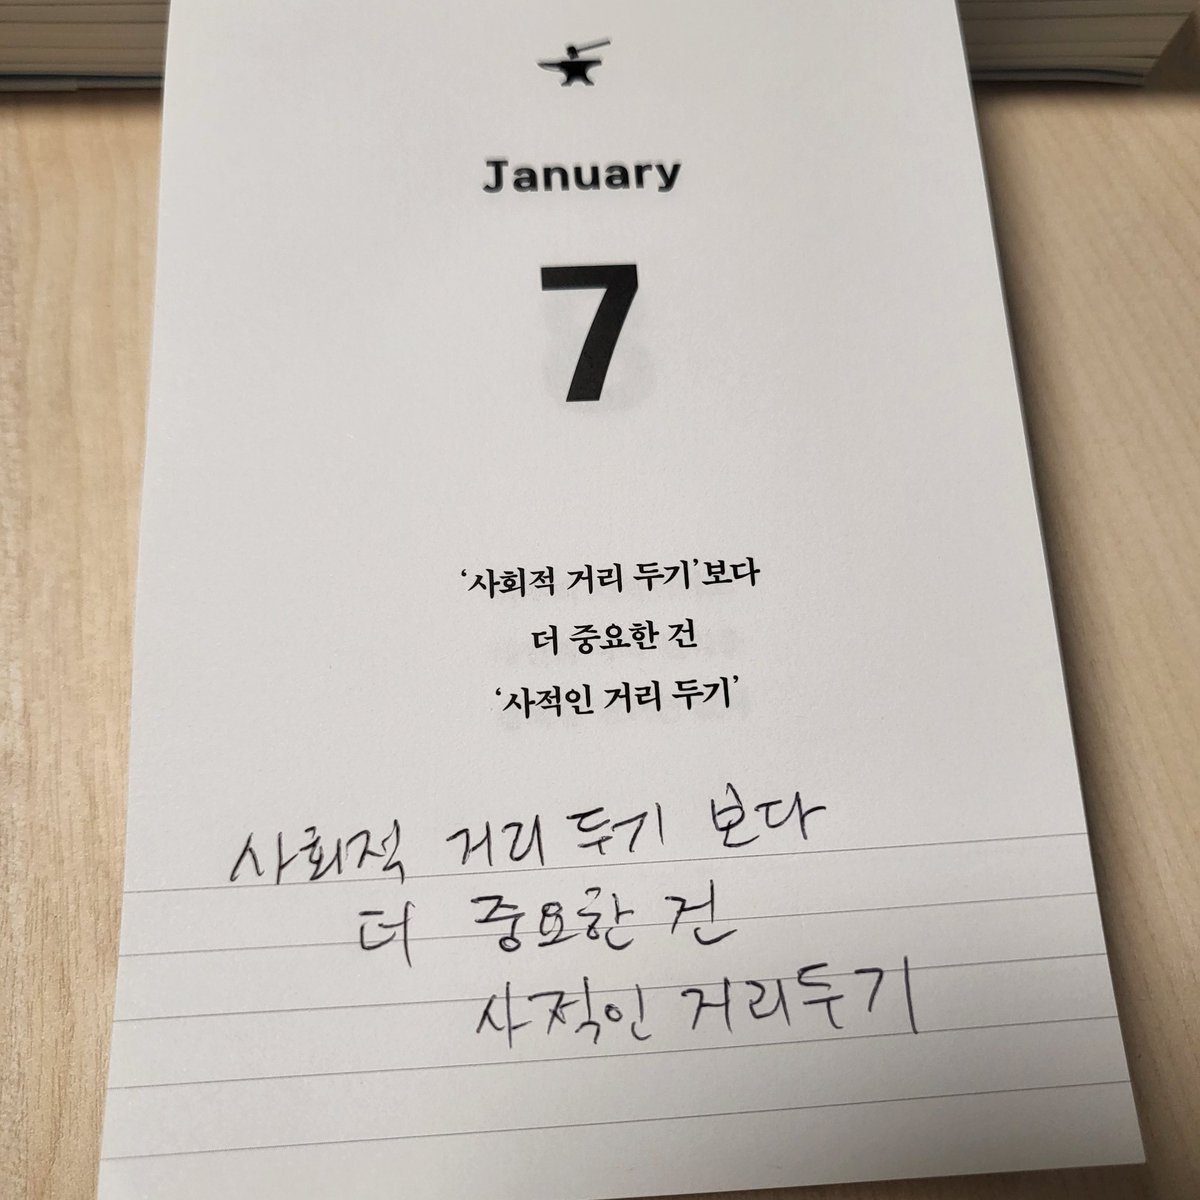 January
7
‘사회적 거리 두기’보다
더 중요한 건
‘사적인 거리 두기’
사회적 거리 두기 보다
더 중요한 건
사적인 거리두기